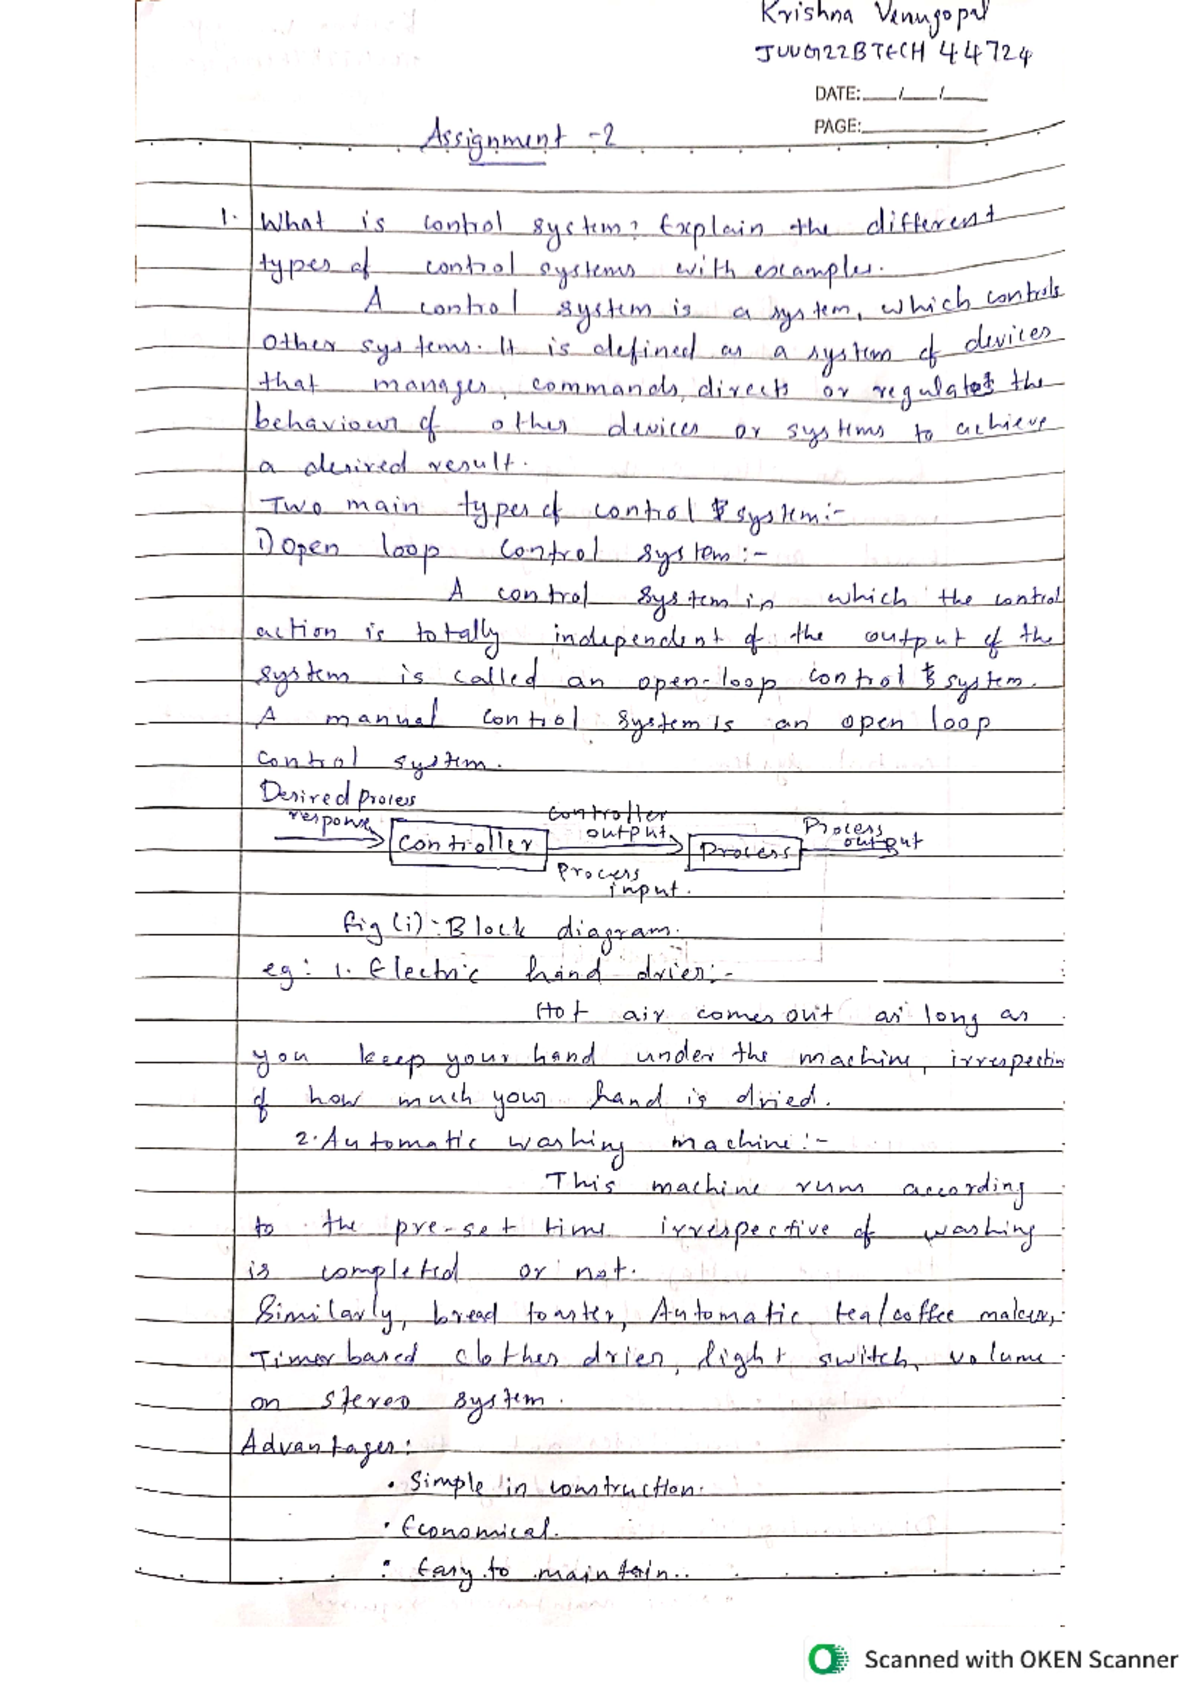 Krishna Venugopal
JUUG22BTECH44724
DATE:___/___/___
PAGE:___
Assignment -2
1. What is control system? Explain the different
types of control systems with examples.
A control system is a system, which controls
other systems. It is defined as a system of devices
that manages, commands, directs or regulates the
behaviour of other devices or systems to achieve
a desired result.
Two main types of control system:-
1) Open loop control system:-
A control system in which the control
action is totally independent of the output of the
system is called an open-loop control system.
A manual control system is an open loop
control system.
Desired process
response
controller
output
Process
output
controller
Process
Process
input.
fig (i):- Block diagram.
eg: 1. Electric hand drier:-
Hot air comes out as long as
you keep your hand under the machine, irrespective
of how much your hand is dried.
2. Automatic washing machine:-
This machine runs according
to the pre-set time irrespective of washing
is completed or not.
Similarly, bread toaster, Automatic tea/coffee maker,
Timer based clothes drier, light switch, volume
on stereo system.
Advantages:
• Simple in construction.
• Economical.
• Easy to maintain.
Scanned with OKEN Scanner